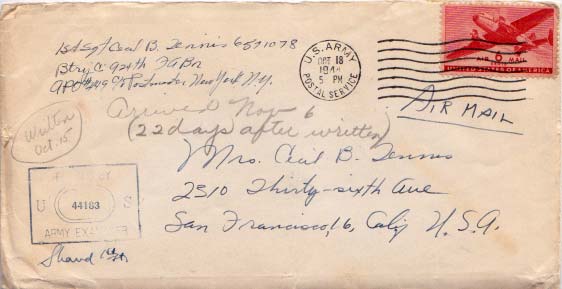 1st Sgt Cecil B. Dennis 6571078
Btry C 924th FA Bn
APO 249 c/o Postmaster New York N.Y.
U.S. ARMY
OCT 18
1944
5 PM
POSTAL SERVICE
6¢
AIR MAIL
UNITED STATES OF AMERICA
AIR MAIL
Arrived Nov 6
(22 days after written)
Written
Oct. 15
Mrs. Cecil B. Dennis
2310 Thirty-sixth Ave
San Francisco, 16, Calif U.S.A.
U 44183 S
ARMY EXAMINER